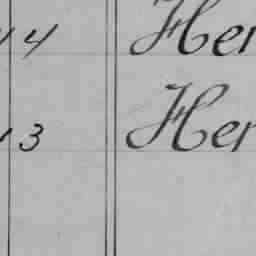 4 Her
3 Her